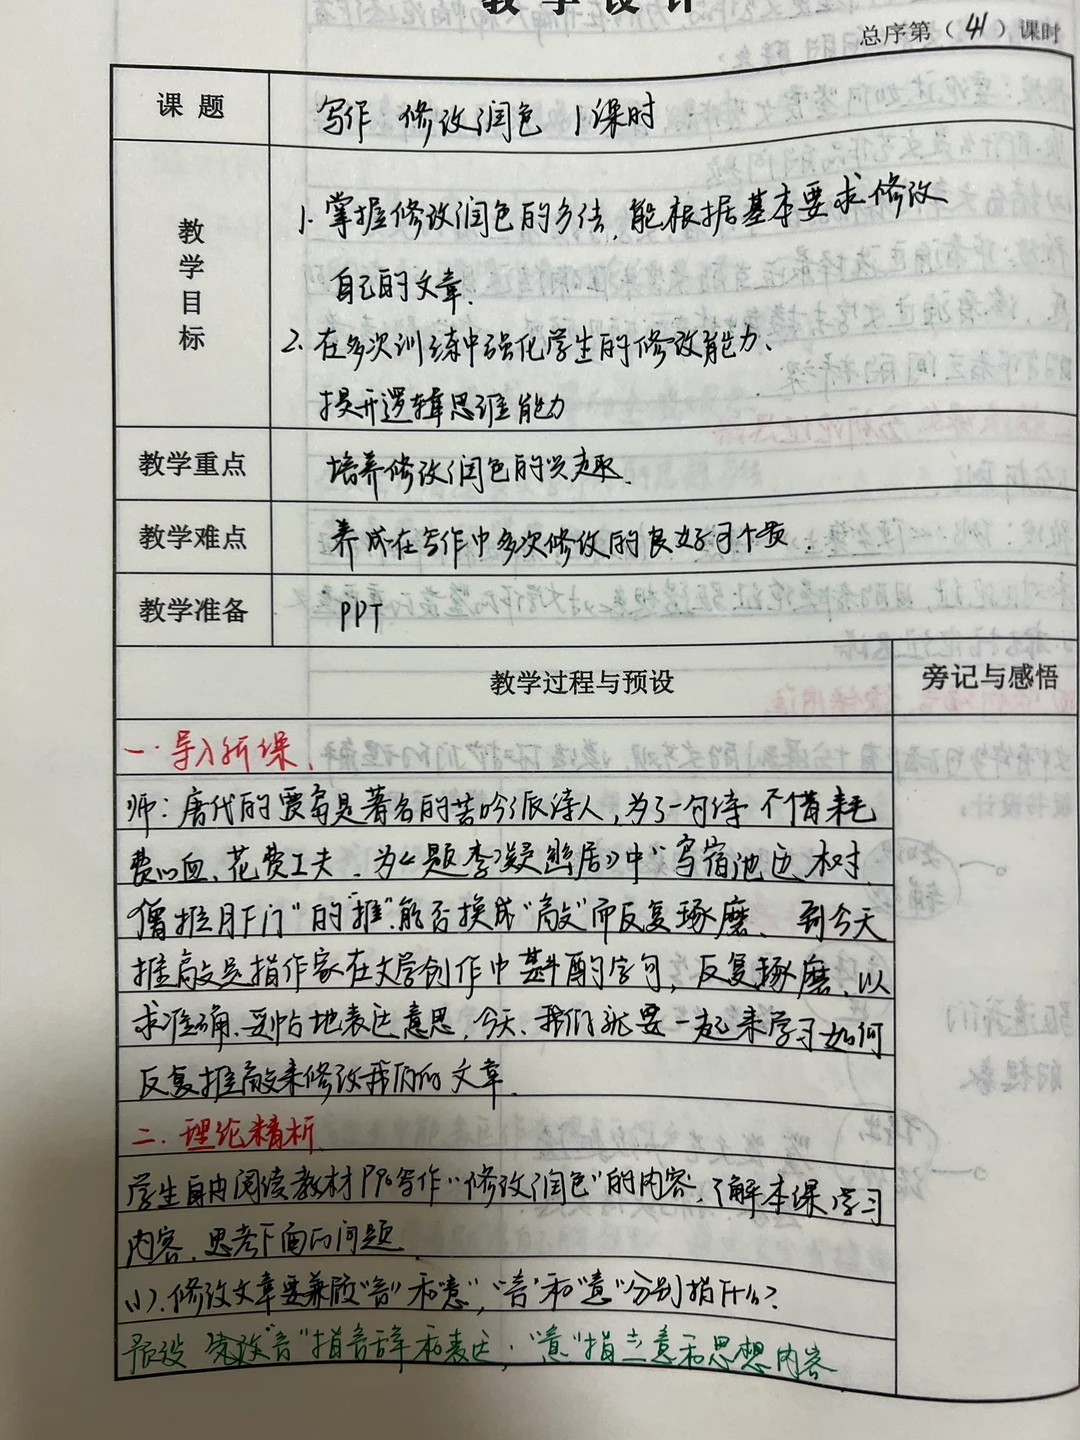 教学设计
总序第（41）课时
课题
写作 修改润色 1课时
教学目标
1. 掌握修改润色的方法，能根据基本要求修改
自己的文章.
2. 在多次训练中强化学生的修改能力、
提升逻辑思维能力
教学重点
培养修改润色的兴趣.
教学难点
养成在写作中多次修改的良好习惯.
教学准备
PPT
教学过程与预设
旁记与感悟
一. 导入新课.
师：唐代的贾岛是著名的苦吟派诗人，为了一句诗 不惜耗
费心血、花费工夫. 为《题李凝幽居》中“鸟宿池边树,
僧推月下门”的“推”能否换成“敲”而反复琢磨、 到今天
推敲是指作家在文学创作中斟酌字句，反复琢磨、以
求准确、妥帖地表达意思. 今天、我们就要一起来学习如何
反复推敲来修改我们的文章.
二. 理论精析.
学生自由阅读教材P96写作“修改润色”的内容，了解本课学习
内容. 思考下面的问题.
(1). 修改文章要兼顾“言”和“意”，“言”和“意”分别指什么?
预设 “言”指言辞和表达；“意”指立意和思想内容